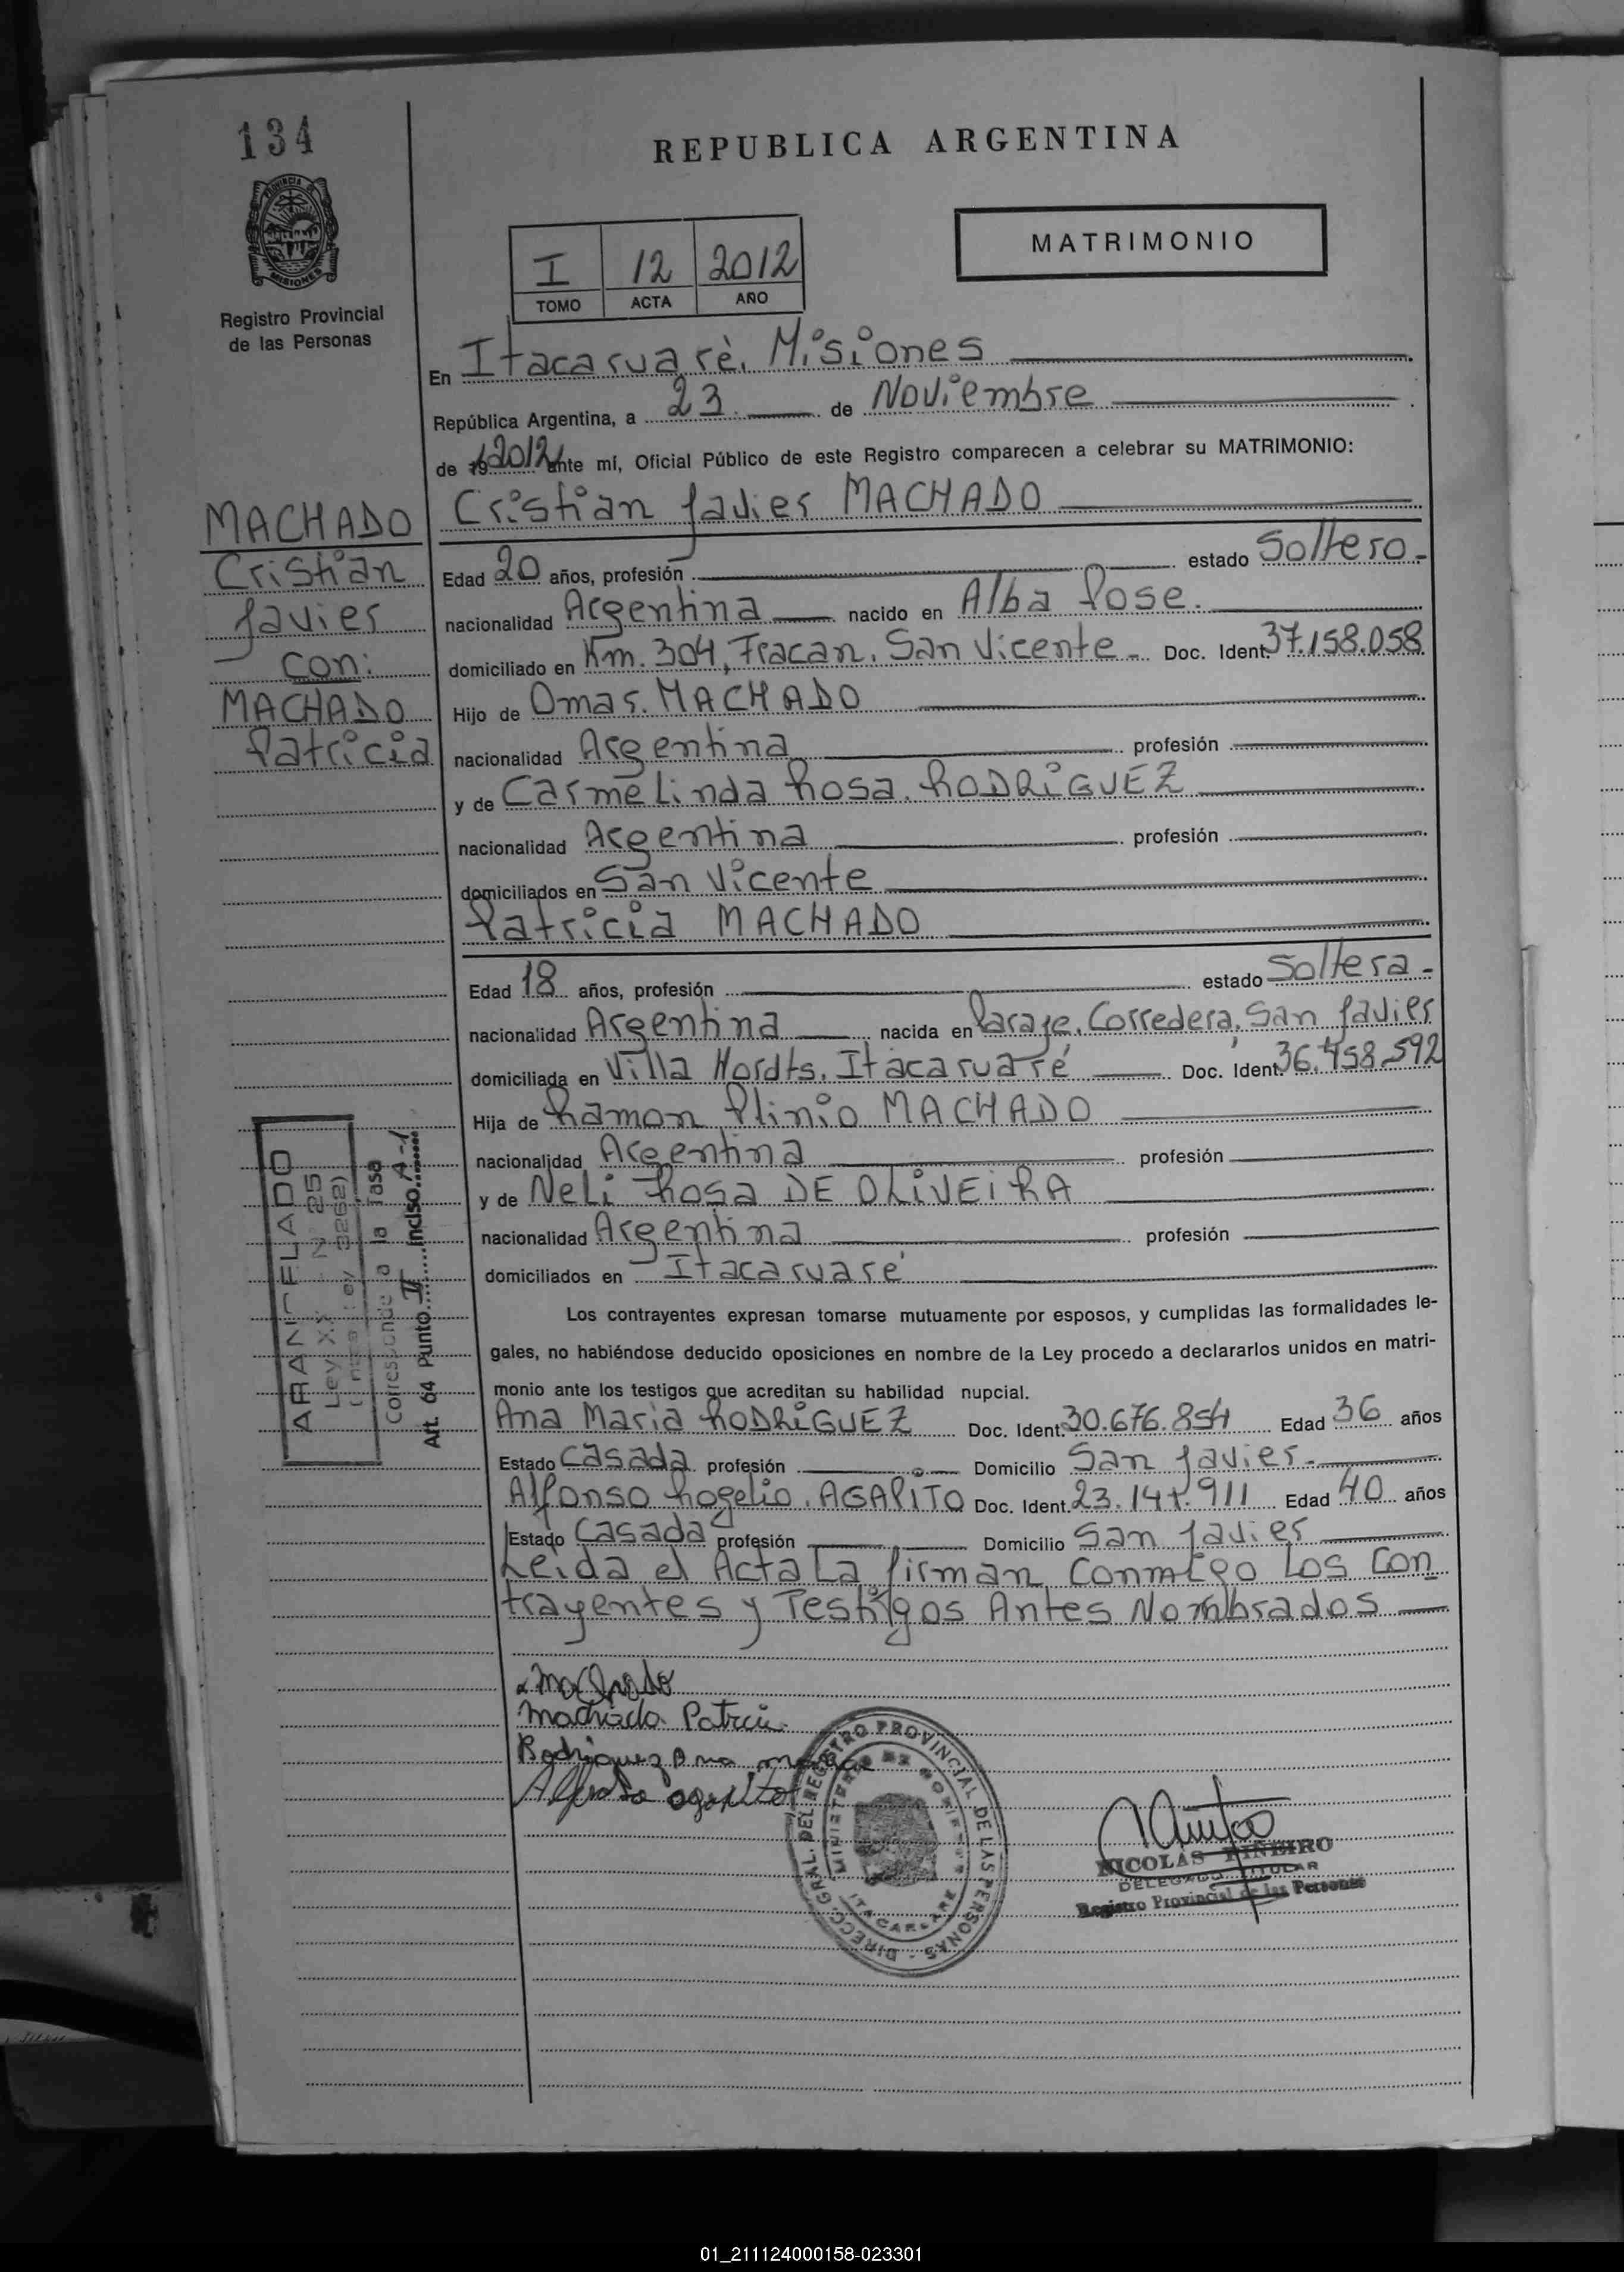 134
REPUBLICA ARGENTINA
PROVINCIA DE
MISIONES
Registro Provincial
de las Personas
I 12 2012
TOMO ACTA AÑO
MATRIMONIO
En Itacaruaré, Misiones
República Argentina, a 23 de Noviembre
de 19 2012 ante mí, Oficial Público de este Registro comparecen a celebrar su MATRIMONIO:
MACHADO
Cristian
Javier
con:
MACHADO
Patricia
Cristian Javier MACHADO
Edad 20 años, profesión estado Soltero
nacionalidad Argentina nacido en Alba Pose.
domiciliado en Km. 304, Fracan, San Vicente Doc. Ident. 37.158.058
Hijo de Omar MACHADO
nacionalidad Argentina profesión
y de Carmelinda Rosa RODRÍGUEZ
nacionalidad Argentina profesión
domiciliados en San Vicente
Patricia MACHADO
Edad 18 años, profesión estado Soltera
nacionalidad Argentina nacida en Paraje, Corredera, San Javier
domiciliada en Villa Hordts, Itacaruaré Doc. Ident. 36.458.592
Hija de Ramon Plinio MACHADO
nacionalidad Argentina profesión
y de Neli Rosa DE OLIVEIRA
nacionalidad Argentina profesión
domiciliados en Itacaruaré
Los contrayentes expresan tomarse mutuamente por esposos, y cumplidas las formalidades le-
gales, no habiéndose deducido oposiciones en nombre de la Ley procedo a declararlos unidos en matri-
monio ante los testigos que acreditan su habilidad nupcial.
Ana Maria RODRIGUEZ Doc. Ident. 30.676.854 Edad 36 años
Estado Casada profesión Domicilio San Javier
Alfonso Rogelio AGAPITO Doc. Ident. 23.147.911 Edad 40 años
Estado Casada profesión Domicilio San Javier
Leida el Acta La firman Conmigo Los Con
trayentes y Testigos Antes Nombrados
ARANCELADO
Ley XXI N 25
Corresponde a la Tasa
Art. 64 Punto II inciso A-1
Machado
Machado Patricia
Rodriguez Ana maria
Alfonso agapito
DIRECC. GRAL. DEL REGISTRO PROVINCIAL DE LAS PERSONAS
MINISTERIO DE GOBIERNO
ITACARUARE
NICOLAS PIÑEIRO
DELEGADO TITULAR
Registro Provincial de las Personas
01_211124000158-023301